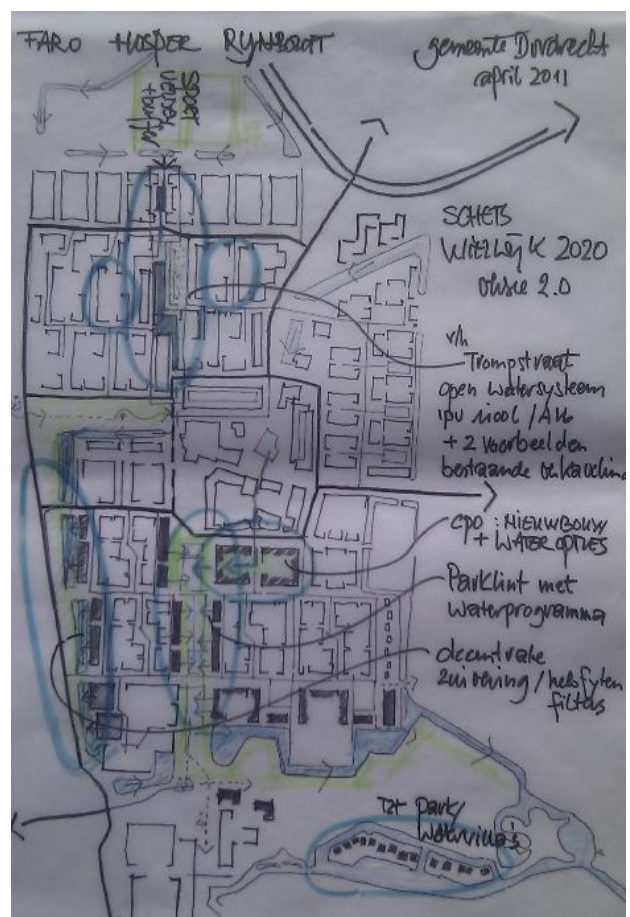 FARO + HOSPER RIJNBOUTT
gemeente Dordrecht
april 2011
SPOET
+ buffer
SCHETS
WIELWIJK 2020
versie 2.0
v/h
Trompstraat
open watersysteem
ipv riool / AW
+ 2 voorbeelden
bestaande verkaveling
CPO: NIEUWBOUW
+ WATEROPTIES
Parklint met
waterprogramma
decentrale
zuivering / helofyten
filters
Park/
Watervilla's